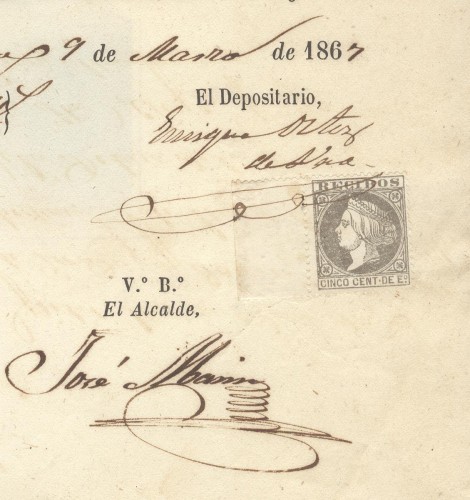 9 de Marzo de 1867
El Depositario,
Enrique Ortiz
de
RECIBOS
CINCO CENT. DE E.º
V.º B.º
El Alcalde,
José Marin